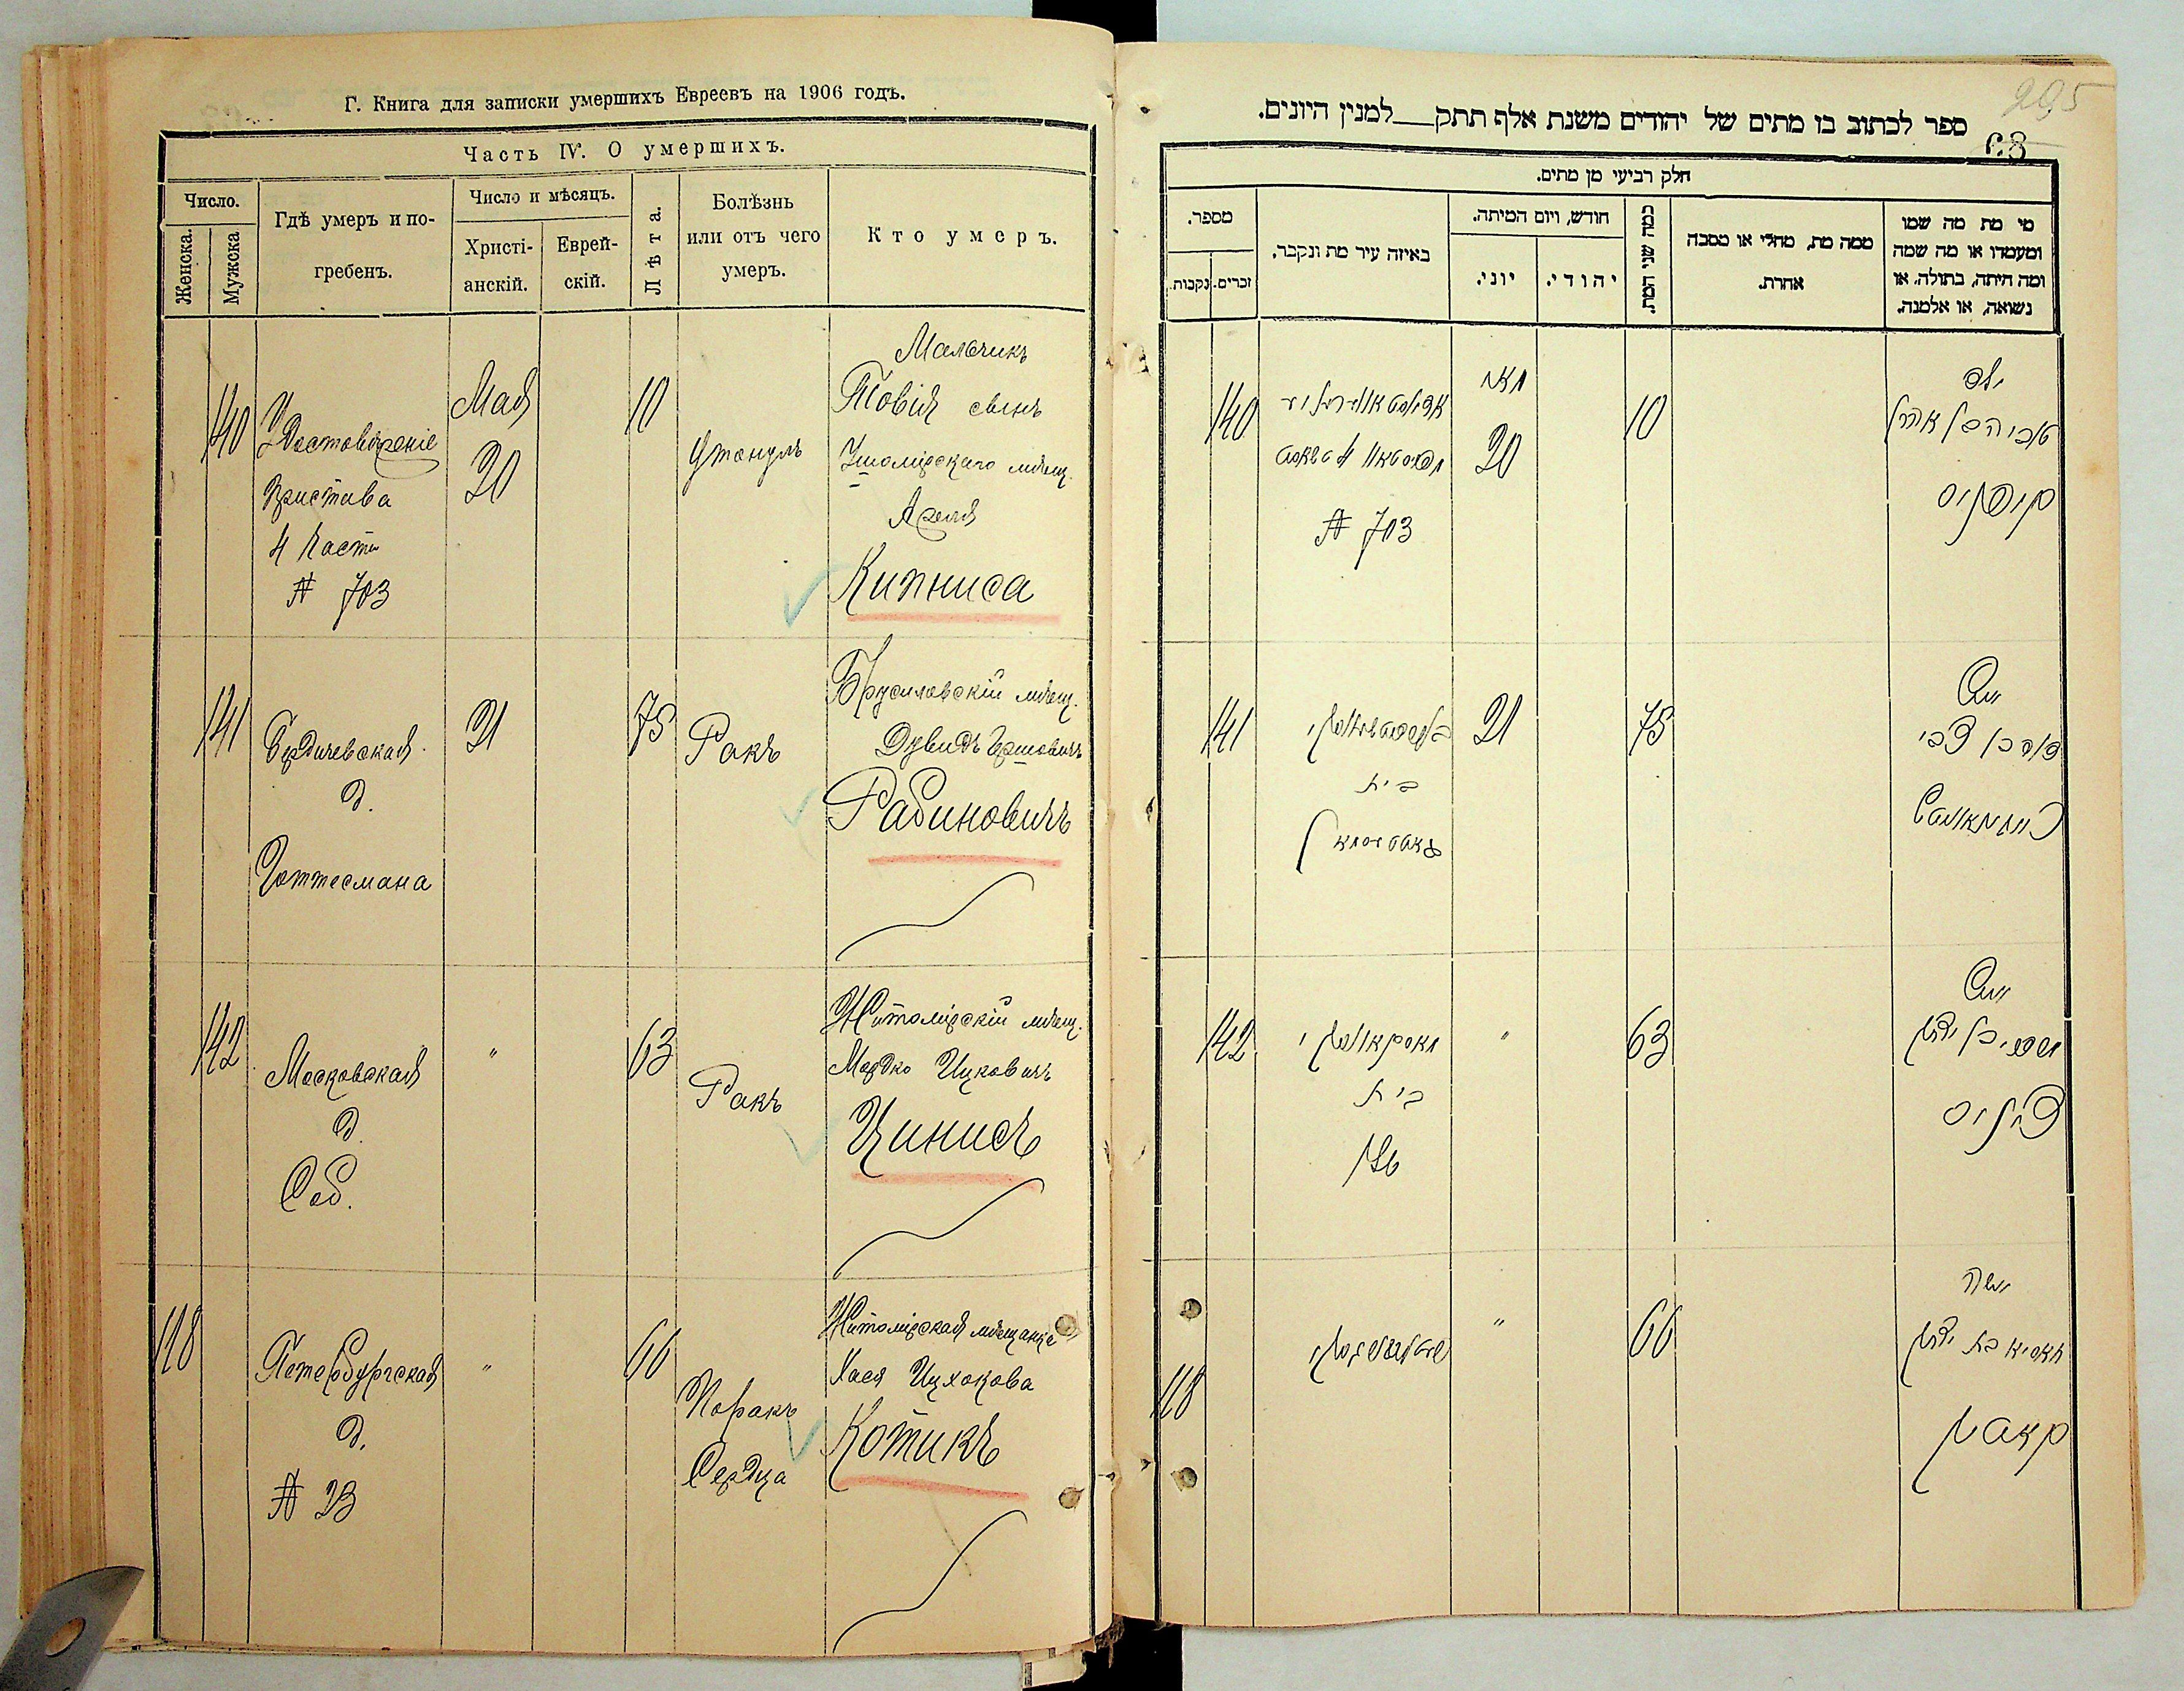 Г. Книга для записки умершихъ Евреевъ на 1906 годъ.
Часть IV. О умершихъ.
Число.
Женска.
Мужска
Гдѣ умеръ и по-
гребенъ.
Число и мѣсяцъ.
Христі-
анскій.
Еврей-
скій.
Лѣта.
Болѣзнь
или отъ чего
умеръ.
Кто умеръ.
140
Удостовѣреніе
Пристава
4 части
№ 703
Мая
20
10
Утонулъ
Мальчикъ
Товія сынъ
Ушомірскаго мѣщ.
Арона
Кипниса
141
Бердичевская
д.
Готтесмана
21
75
Ракъ
Брусиловскій мѣщ.
Дувидъ Гершовичъ
Рабиновичъ
142
Московская
д.
Соб.
"
63
Ракъ
Житомірскій мѣщ.
Мордко Ицковичъ
Цинисъ
118
Петербургская
д.
№ 23
"
66
Порокъ
Сердца
Житомірская мѣщанка
Хася Ицхокова
Котикъ
295
63
ספר לכתוב בו מתים של יהודים משנת אלף תתק__למנין היונים.
חלק רביעי מן מתים.
מספר.
זכרים.
נקבות.
באיזה עיר מת ונקבר.
חודש, ויום המיתה.
יוני.
יהודי.
כמה שני המת.
ממה מת, מחלי או מסבה
אחרת.
מי מת מה שמו
ומעמדו או מה שמה
ומה היתה, בתולה, או
נשואה, או אלמנה.
140
№ 703
מאי
20
10
ילד
טביה בן אהרן
קיפניס
141
בית
21
75
איש
דוד בן צבי
ראבינאוויטש
142
מאסקאווסקי
בית
"
63
איש
מרדכי בן יצחק
ציניס
118
"
66
אשה
חאסיא בת יצחק
קאטיק